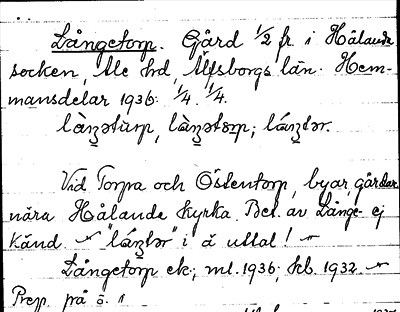 Långetorp. Gård 1/2 fr. i Hålanda
socken, Ale hd, Älfsborgs län. Hem-
mansdelar 1936: 1/4. 1/4.
làŋətùrp, làŋətɵrp; láŋtər.
Vid Torpa och Östentorp, byar, gårdar
nära Hålanda kyrka. Bet. av Långe- ej
känd. ~ "láŋtər" i ä uttal! ~
Långetorp ek; ml. 1936; kb. 1932. ~
Prep. på ö. 1